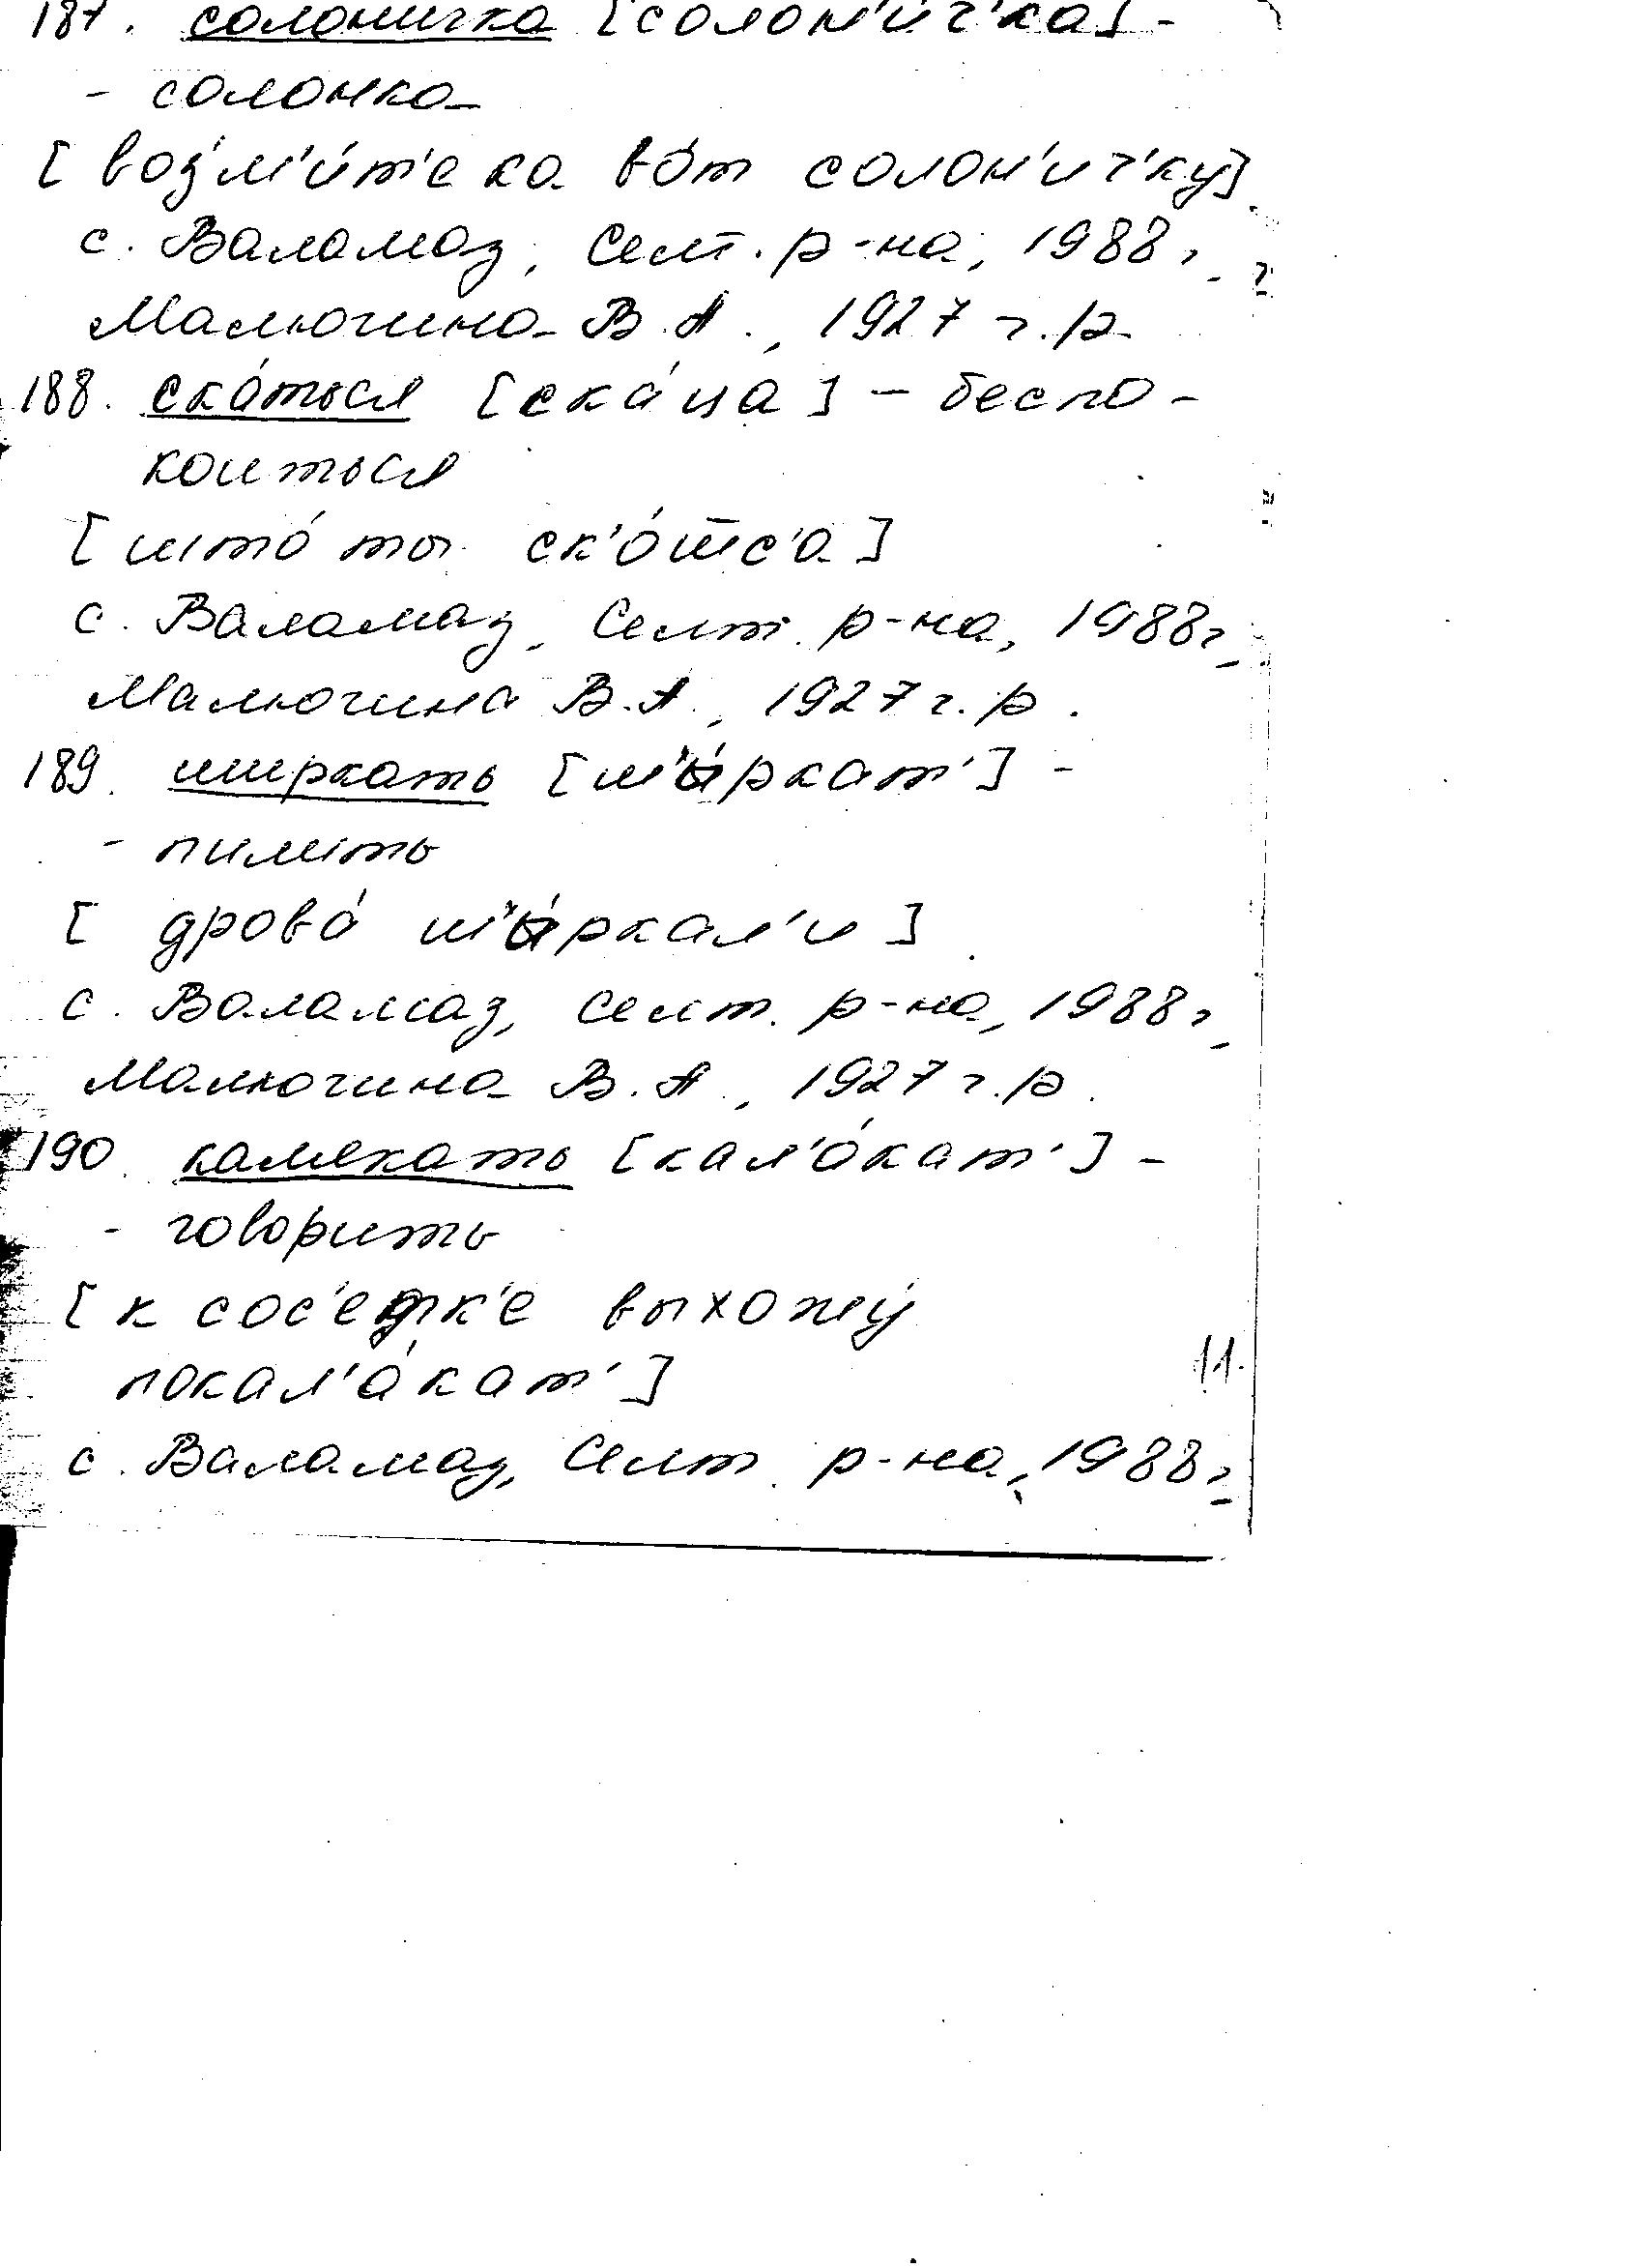 187. солоничка [солон'и́ч'ка] -
- солонка
[воз'м'и́т'е ка во́т солон'ич'ку]
с. Валамаз, Селт. р-на, 1988 г.,
Малючина В.А., 1927 г.р.
188. ска́ться [ска́ца] - беспо-
коиться
[што́ ты ск'о́т̅с'а]
с. Валамаз, Селт. р-на, 1988 г.,
Малючина В.А., 1927 г.р.
189. ширкать [ш'ы́ркат'] -
- пилить
[дрова́ ш'ы́ркал'и]
с. Валамаз, Селт. р-на, 1988 г.,
Малючина В.А., 1927 г.р.
190. калякать [кал'а́кат'] -
- говорить
[к сос'е́тк'е выхожу́
покал'а́кат']
11.
с. Валамаз, Селт. р-на, 1988 г.,